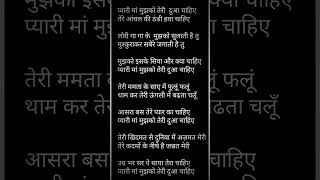 प्यारी मां मुझको तेरी दुआ चाहिए
तेरे आंचल की ठंडी हवा चाहिए
लोरी गा गा के मुझको सुलाती है तु
मुस्कुराकर सबेरे जगाती है तु
मुझको इसके सिवा और क्या चाहिए
प्यारी मां मुझको तेरी दुआ चाहिए
तेरी ममता के साए में फूलूं फलूं
थाम कर तेरी ऊंगली में बढता चलूँ
आसरा बस तेरे प्यार का चाहिए
प्यारी मां मुझको तेरी दुआ चाहिए
तेरी खिदमत से दुनिया में अज़मत मेरी
तेरे कदमों के नीचे है जन्नत मेरी
उम्र भर सर पे साया तेरा चाहिए
प्यारी मां मुझको तेरी दुआ चाहिए